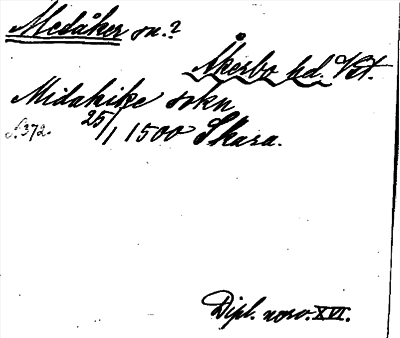 Medåker sn.?
Åkerbo hd. Vst.
Midakike sokn
S. 372. 25/1 1500 Skara.
Dipl. norv. XVI.